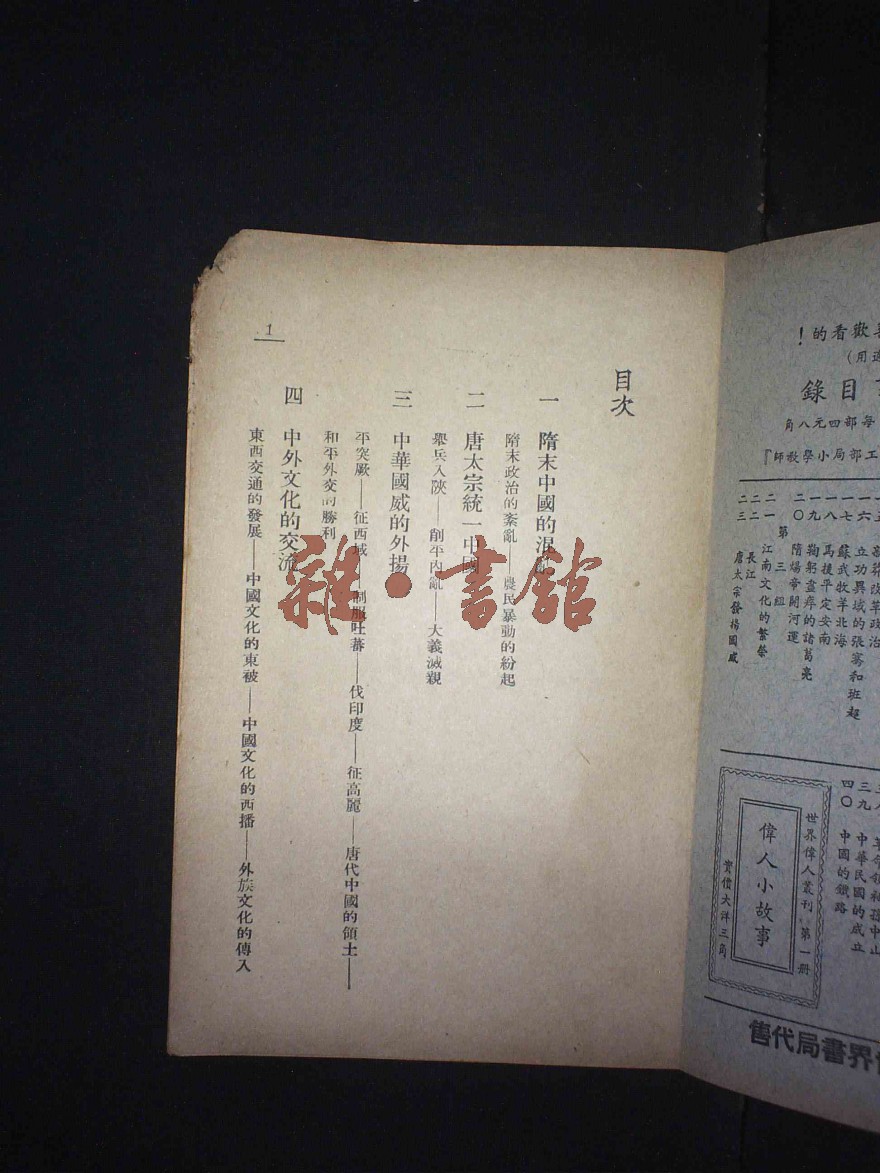 目次
一 隋末中國的混亂
隋末政治的紊亂——農民暴動的紛起
二 唐太宗統一中國
舉兵入陝——削平內亂——大義滅親
三 中華國威的外揚
平突厥——征西域——制服吐蕃——伐印度——征高麗——唐代中國的領土——
和平外交的勝利
四 中外文化的交流
東西交通的發展——中國文化的東被——中國文化的西播——外族文化的傳入
1
雜·書舘
歡看的！
用）
目錄
每部四元八角
工部局小學教師『
一六 立功異域的張騫和班超
一七 蘇武牧羊北海
一八 馬援平定安南
一九 鞠躬盡瘁的諸葛亮
二〇 隋煬帝開河運
第三組
二一 江南文化的繁榮
二二 長江
二三 唐太宗發揚國威
三九 中華民國的成立
四〇 中國的鐵路
世界偉人叢刊 第一册
偉人小故事
實價大洋三角
界書局代售